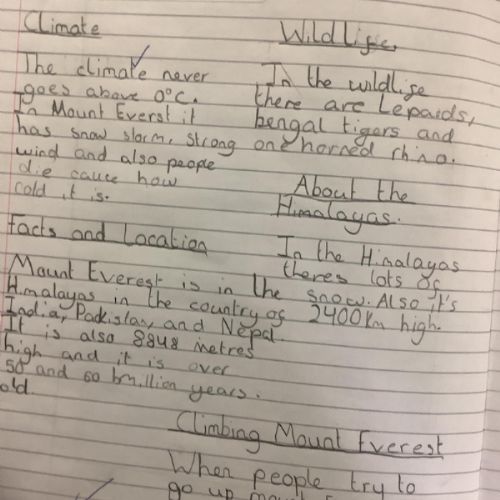 Climate
The climate never
goes above 0°C.
In Mount Everst it
has snow storm, strong
wind and also people
die cause how
cold it is.
Wildlife
In the wildlife
there are Lepards,
bengal tigers and
one horned rhino.
About the
Himalayas.
In the Himalayas
theres lots of
snow. Also it's
2400km high.
Facts and Location
Mount Everest is in the
Himalayas in the country of
India, Packistan, and Nepal.
It is also 8848 metres
high and it is over
50 and 60 million years.
old.
Climbing Mount Everest
When people try to
go up